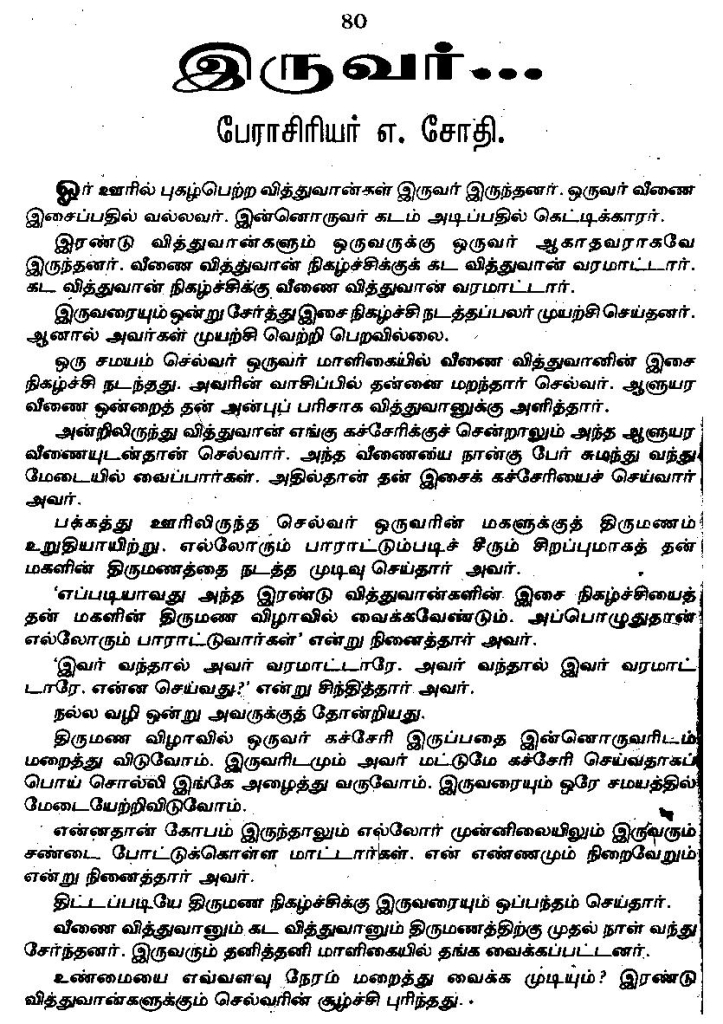 80
இருவர்...
பேராசிரியர் எ. சோதி.
ஓர் ஊரில் புகழ்பெற்ற வித்துவான்கள் இருவர் இருந்தனர். ஒருவர் வீணை
இசைப்பதில் வல்லவர். இன்னொருவர் கடம் அடிப்பதில் கெட்டிக்காரர்.
இரண்டு வித்துவான்களும் ஒருவருக்கு ஒருவர் ஆகாதவராகவே
இருந்தனர். வீணை வித்துவான் நிகழ்ச்சிக்குக் கட வித்துவான் வரமாட்டார்.
கட வித்துவான் நிகழ்ச்சிக்கு வீணை வித்துவான் வரமாட்டார்.
இருவரையும் ஒன்று சேர்த்து இசை நிகழ்ச்சி நடத்தப்பலர் முயற்சி செய்தனர்.
ஆனால் அவர்கள் முயற்சி வெற்றி பெறவில்லை.
ஒரு சமயம் செல்வர் ஒருவர் மாளிகையில் வீணை வித்துவானின் இசை
நிகழ்ச்சி நடந்தது. அவரின் வாசிப்பில் தன்னை மறந்தார் செல்வர். ஆளுயர
வீணை ஒன்றைத் தன் அன்புப் பரிசாக வித்துவானுக்கு அளித்தார்.
அன்றிலிருந்து வித்துவான் எங்கு கச்சேரிக்குச் சென்றாலும் அந்த ஆளுயர
வீணையுடன்தான் செல்வார். அந்த வீணையை நான்கு பேர் சுமந்து வந்து
மேடையில் வைப்பார்கள். அதில்தான் தன் இசைக் கச்சேரியைச் செய்வார்
அவர்.
பக்கத்து ஊரிலிருந்த செல்வர் ஒருவரின் மகளுக்குத் திருமணம்
உறுதியாயிற்று. எல்லோரும் பாராட்டும்படிச் சீரும் சிறப்புமாகத் தன்
மகளின் திருமணத்தை நடத்த முடிவு செய்தார் அவர்.
'எப்படியாவது அந்த இரண்டு வித்துவான்களின் இசை நிகழ்ச்சியைத்
தன் மகளின் திருமண விழாவில் வைக்கவேண்டும். அப்பொழுதுதான்
எல்லோரும் பாராட்டுவார்கள்' என்று நினைத்தார் அவர்.
'இவர் வந்தால் அவர் வரமாட்டாரே. அவர் வந்தால் இவர் வரமாட்
டாரே. என்ன செய்வது?' என்று சிந்தித்தார் அவர்.
நல்ல வழி ஒன்று அவருக்குத் தோன்றியது.
திருமண விழாவில் ஒருவர் கச்சேரி இருப்பதை இன்னொருவரிடம்
மறைத்து விடுவோம். இருவரிடமும் அவர் மட்டுமே கச்சேரி செய்வதாகப்
பொய் சொல்லி இங்கே அழைத்து வருவோம். இருவரையும் ஒரே சமயத்தில்
மேடையேற்றிவிடுவோம்.
என்னதான் கோபம் இருந்தாலும் எல்லோர் முன்னிலையிலும் இருவரும்
சண்டை போட்டுக்கொள்ள மாட்டார்கள். என் எண்ணமும் நிறைவேறும்
என்று நினைத்தார் அவர்.
திட்டப்படியே திருமண நிகழ்ச்சிக்கு இருவரையும் ஒப்பந்தம் செய்தார்.
வீணை வித்துவானும் கட வித்துவானும் திருமணத்திற்கு முதல் நாள் வந்து
சேர்ந்தனர். இருவரும் தனித்தனி மாளிகையில் தங்க வைக்கப்பட்டனர்.
உண்மையை எவ்வளவு நேரம் மறைத்து வைக்க முடியும்? இரண்டு
வித்துவான்களுக்கும் செல்வரின் சூழ்ச்சி புரிந்தது.